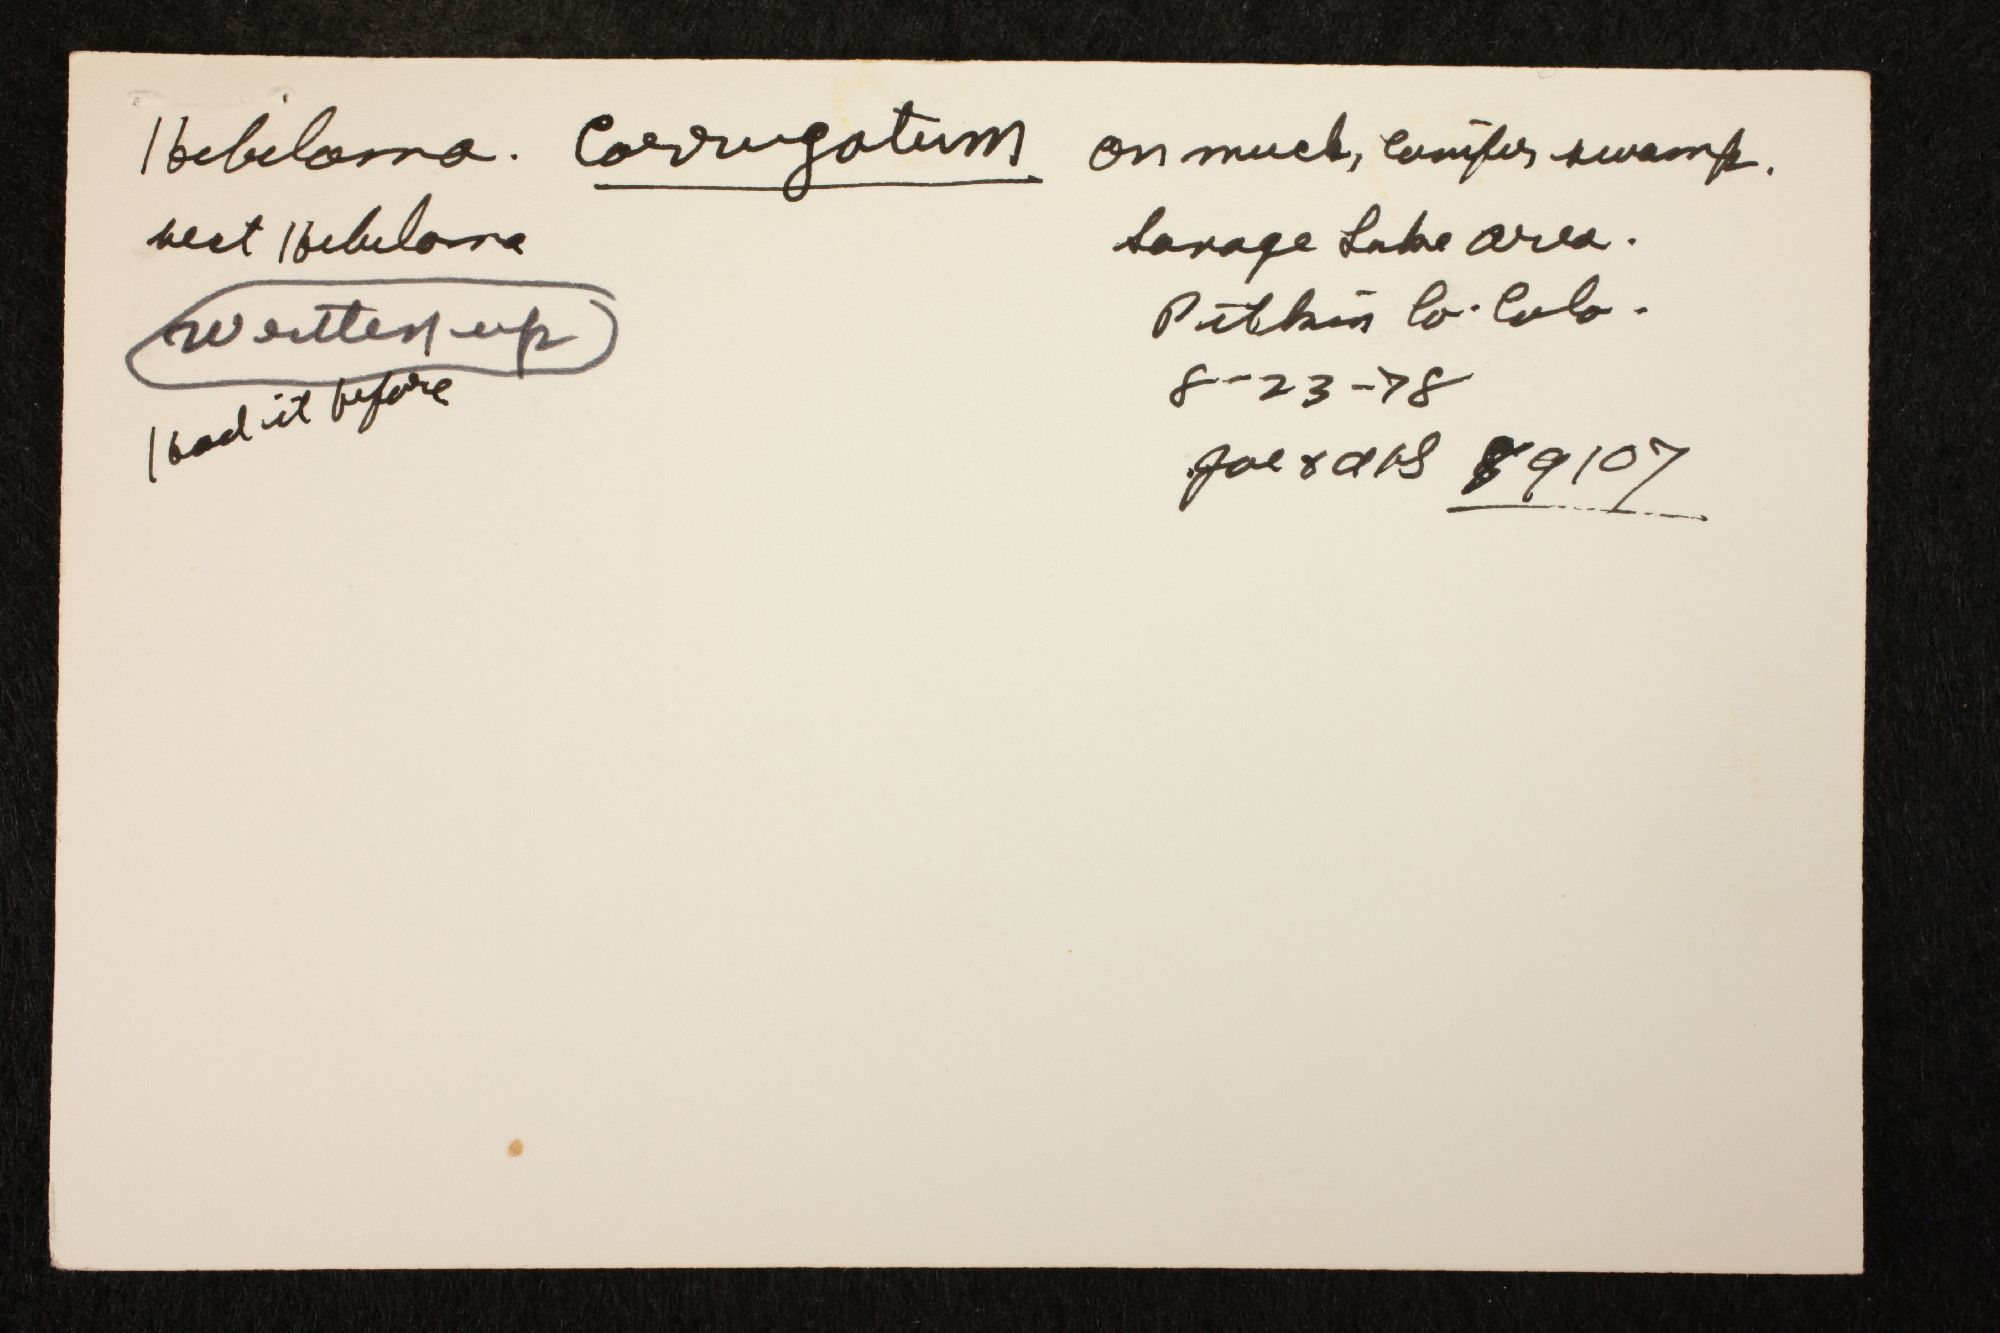 Hebeloma. Corrugatum
sect Hebeloma
Written up
Had it before
on muck, conifer swamp.
Savage Lake area.
Pitkin Co. Colo.
8-23-78
Joe & AHS 89107